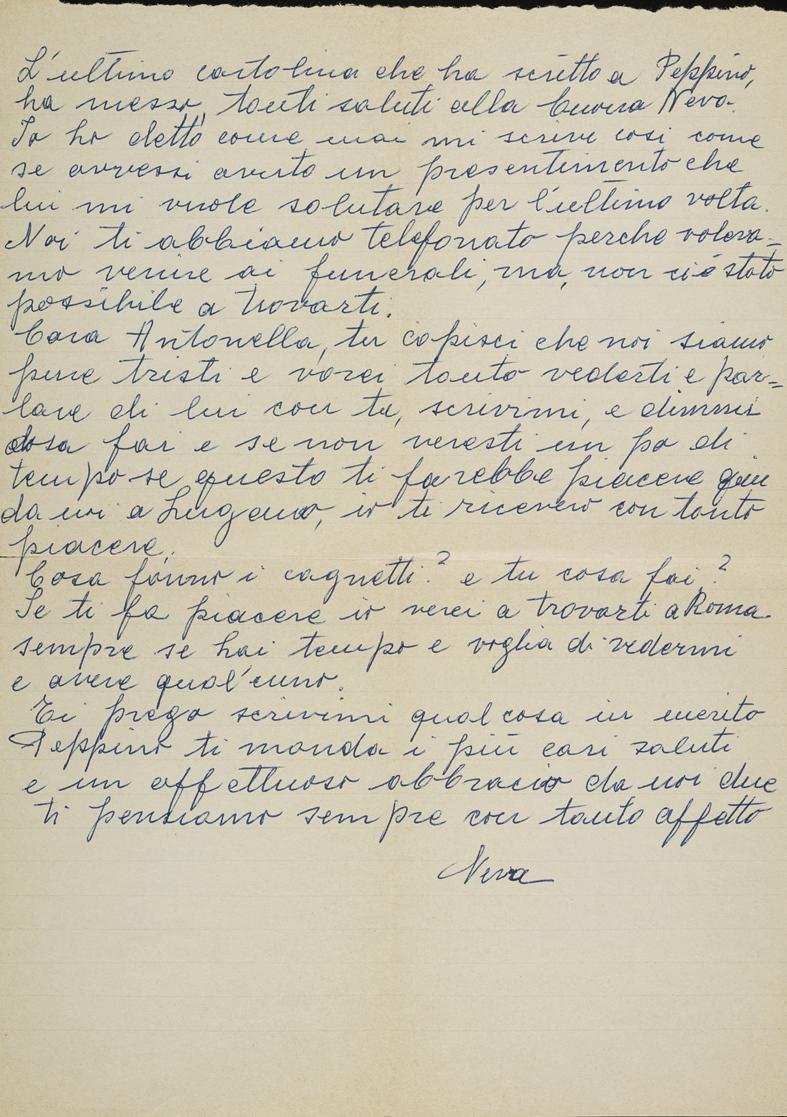 L'ultima cartolina che ha scritto a Peppino,
ha messo, tanti saluti alla buona Neva.
Io ho detto come mai mi scrive così come
se avvessi avuto un presentimento che
lui mi vuole salutare per l'ultima volta.
Noi ti abbiamo telefonato perche voleva=
mo venire ai funerali, ma, non ci è stato
possibile a trovarti.
Cara Antonella, tu capisci che noi siamo
pure tristi e vorei tanto vederti e par=
lare di lui con te, scrivimi, e dimmi
cosa fai e se non veresti un po di
tempo se questo ti farebbe piacere qui
da noi a Lugano, io ti ricevero con tanto
piacere.
Cosa fanno i cagnetti? e tu cosa fai?
Se ti fa piacere io verei a trovarti a Roma.
sempre se hai tempo e voglia di vedermi
e avere qual'cuno.
Ti prego scrivimi qualcosa in merito
Peppino ti manda i più cari saluti
e un affettuoso abbracio da noi due
ti pensiamo sempre con tanto affetto
Neva